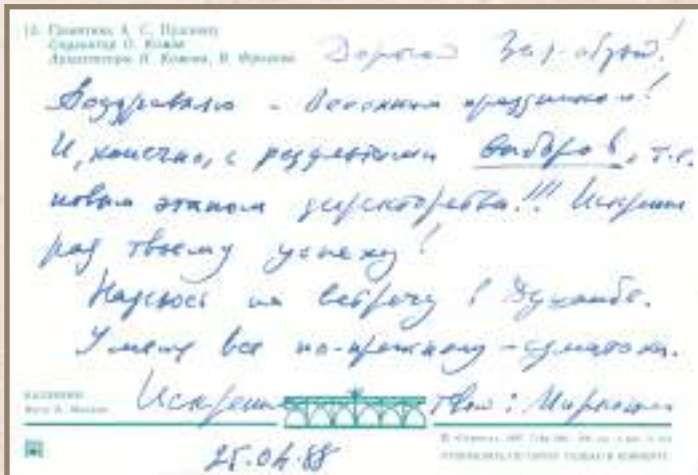 12. Памятник А. С. Пушкину
Скульптор О. Комов
Архитекторы Н. Комова, В. Фролов
Дорогой !
Поздравляю с Весенним праздником!
И, конечно, с результатами выборов, т.е.
новым этапом директорства!!! Искренне
рад твоему успеху!
Надеюсь на встречу в Душанбе.
У меня все по-прежнему - суматоха.
Искренне твой:
КАЛИНИН
25.04.88